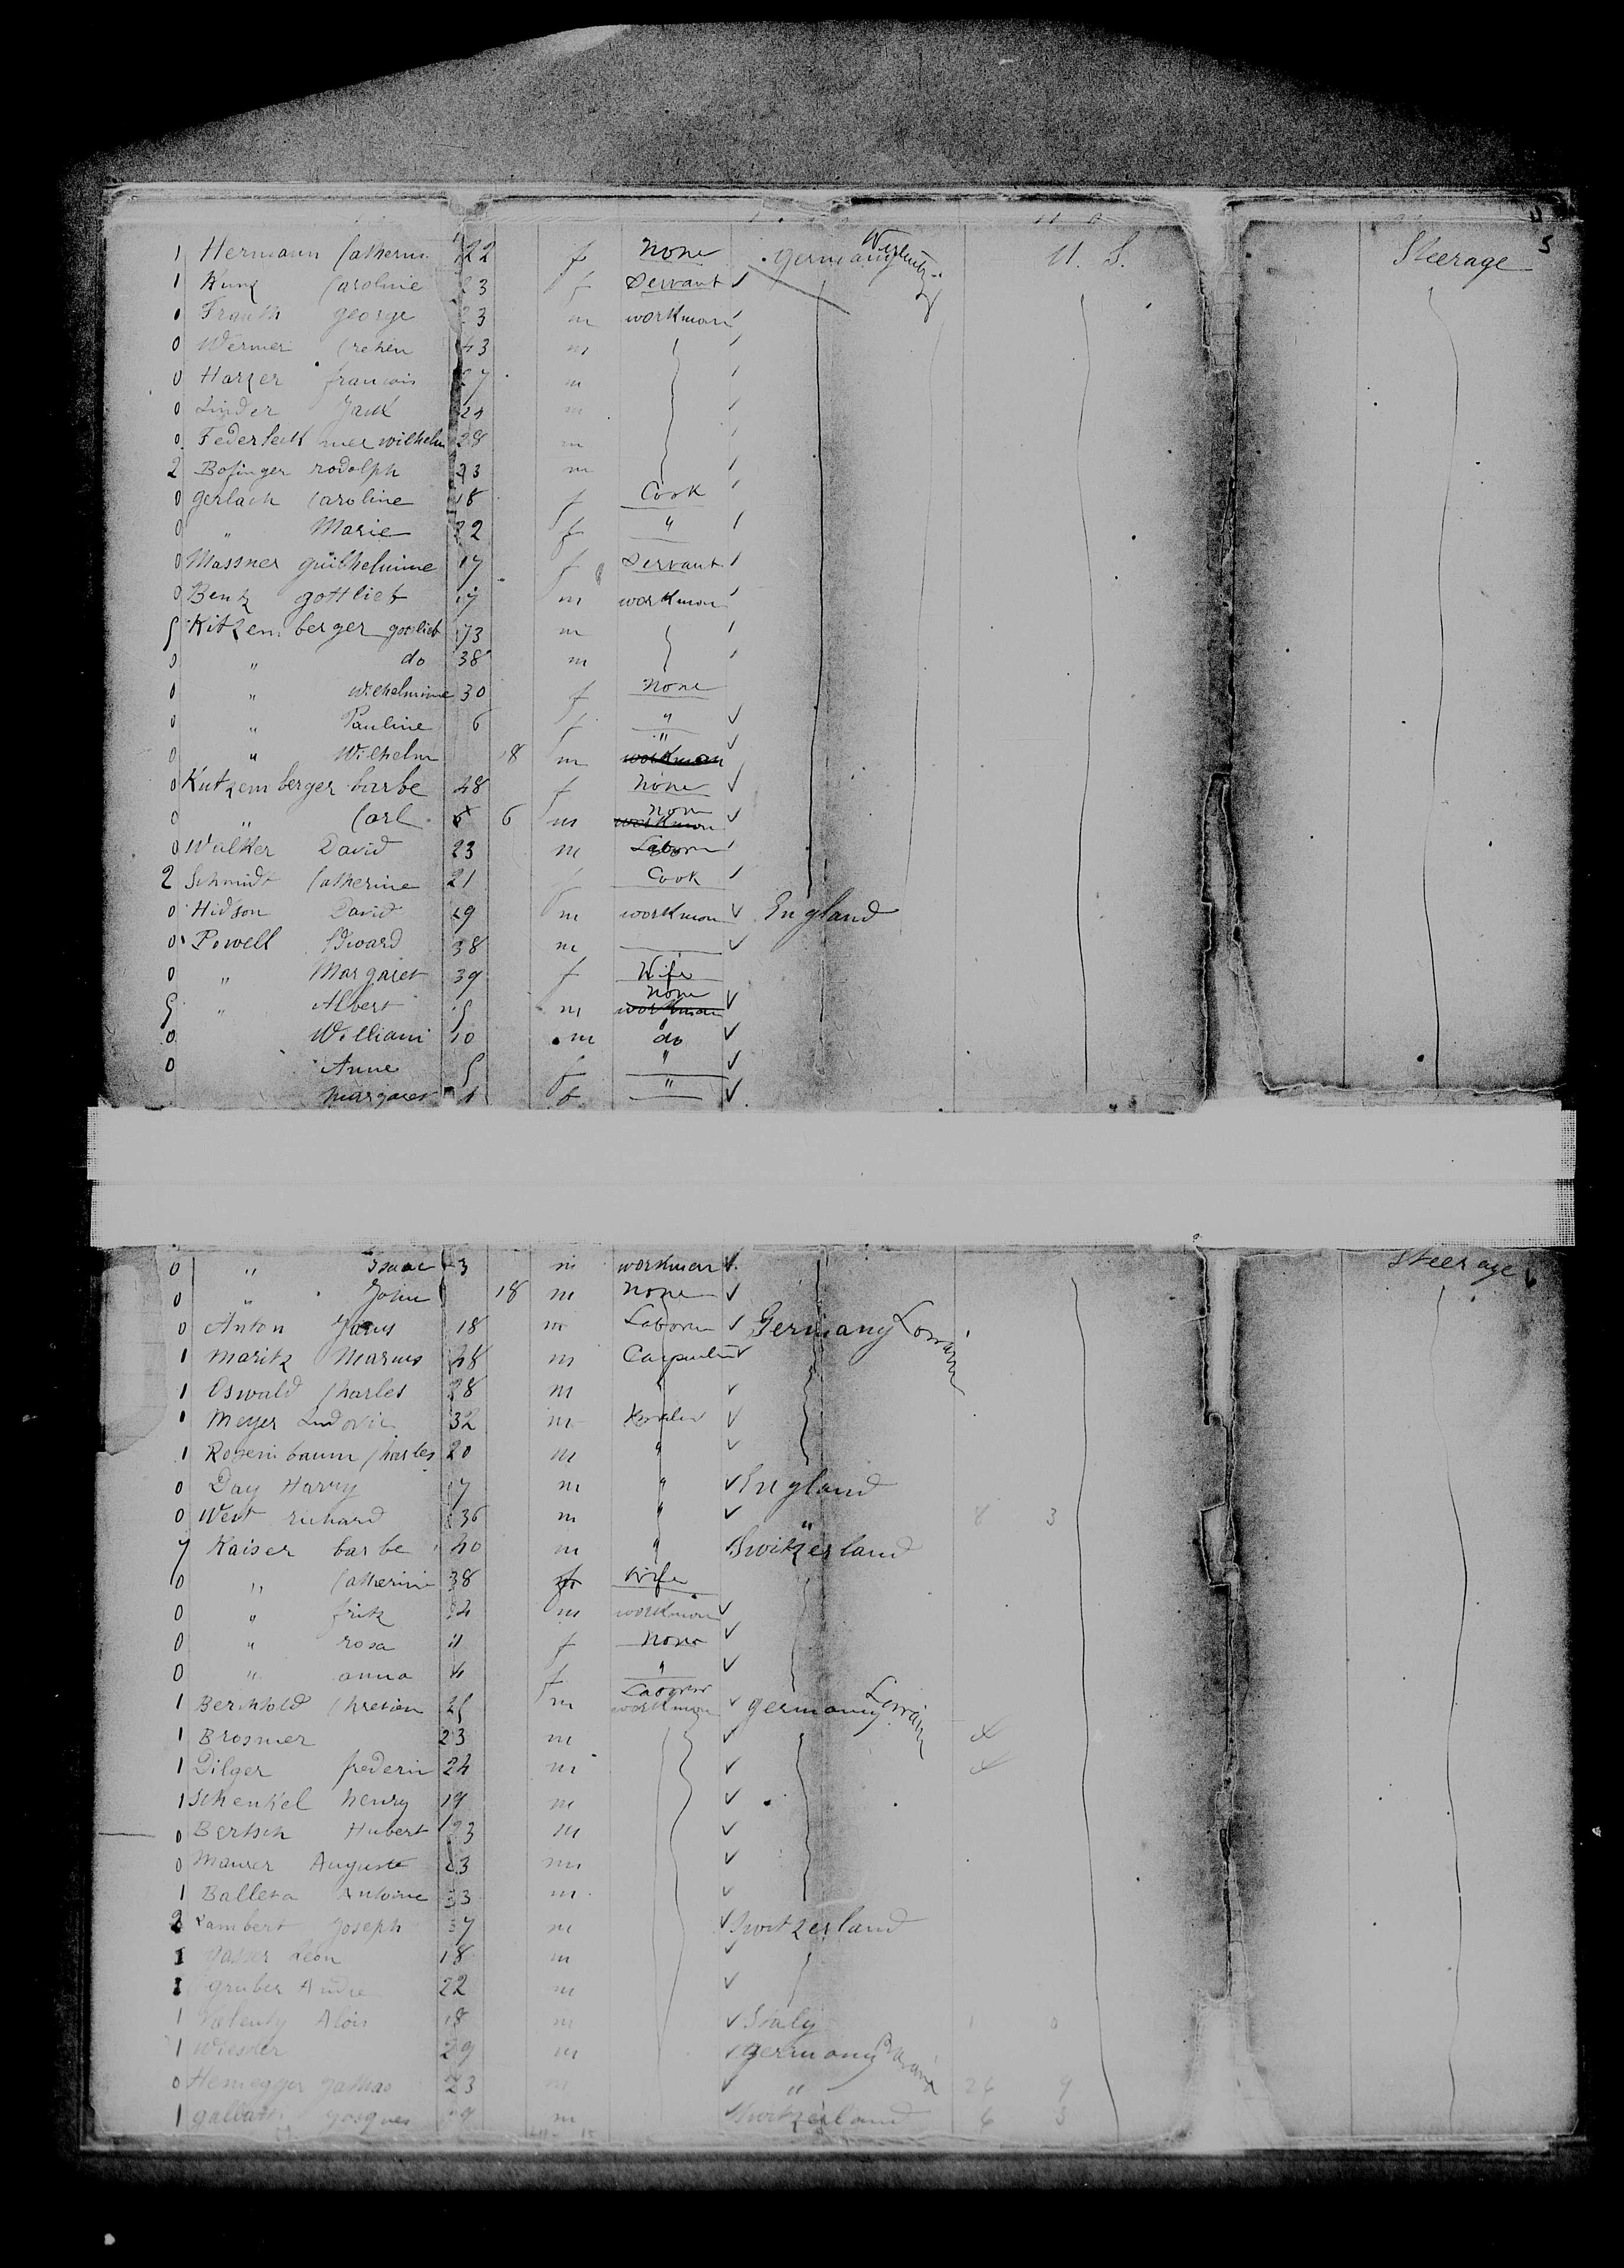 1 Hermann Catherine 22 f none Germany U. S. Steerage 5
1 Kunz Caroline 23 f Servant
0 Frauth george 23 m workman
0 Werner 43 m
0 Harzer francois 27 m
0 Linder 24 m
0 wilhelm 28 m
2 Bofinger rodolph 23 m
0 gerlach Caroline 18 f Cook
0 " Marie 22 f "
0 Massner guilhelmine 17 f Servant
0 Bentz gottlieb 17 m workman
5 Kitzemberger gottlieb 73 m
0 " do 38 m
0 " Wilhelmine 30 f none
0 " Pauline 6 f "
0 " Wilhelm 18 m " workman
0 Kutzemberger barbe 48 f none
0 " Carl 6 m none workman
0 Walker David 23 m Laborer
2 Schmidt Catherine 21 f Cook
0 Hidson David 29 m workman England
0 Powell Edward 38 m
0 " Margaret 39 f Wife
5 " Albert m none workman
0 William 10 m do
0 Anne 5 f "
Margaret 4 f "
0 " Isaac 3 m workman Steerage 6
0 " John 18 m none
0 Anton 18 m Laborer Germany Lorrain
1 Maritz Marius 48 m Carpenter
1 Oswald Charles 28 m "
1 Meyer Ludovic 32 m
1 Rosembaum Charles 20 m "
0 Day Harry 17 m " England
0 West richard 36 m " " 8 3
7 Kaiser barbe 40 m " Switzerland
0 " Catherine 38 f Wife
0 " fritz 14 m workman
0 " rosa 11 f none
0 " anna 4 f "
1 Berthold Chretien 25 m Laborer workman germany Lorrain
1 Brosmer 23 m
1 Dilger frederic 24 m
1 Schenkel henry 19 m
0 Bertsch Hubert 23 m
0 Maurer Auguste 23 m
1 Balleta Antoine 33 m
2 Lambert Joseph 37 m Switzerland
1 Leon 18 m
1 gruber Andre 22 m
1 Valenty Alois 18 m Italy 1 0
1 Wiesler 29 m germany Bavaria
0 Hemegger 23 m " 26 9
1 m Switzerland 6 3